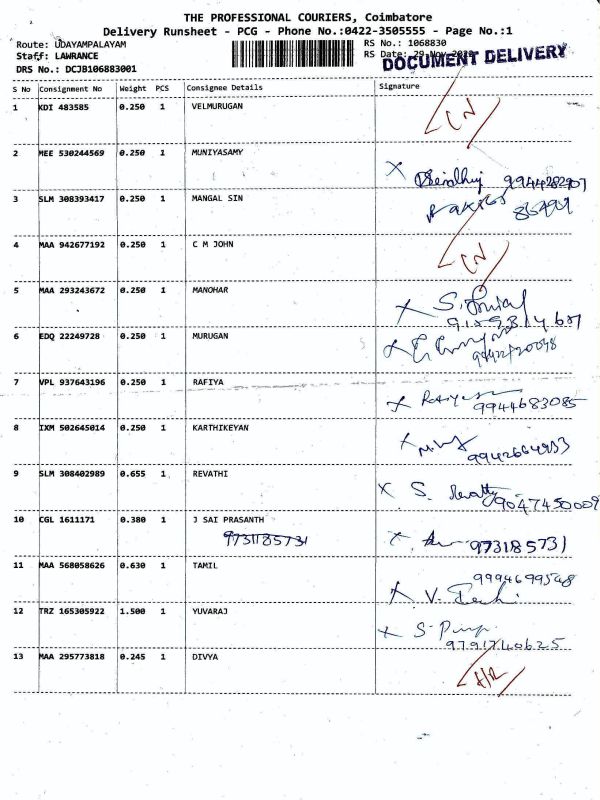 THE PROFESSIONAL COURIERS, Coimbatore
Delivery Runsheet - PCG - Phone No.:0422-3505555 - Page No.:1
Route: UDAYAMPALAYAM
RS No.: 1068830
Staff: LAWRANCE
RS Date: 29-Nov-
DOCUMENT DELIVERY
DRS No.: DCJB106883001
S No Consignment No Weight PCS Consignee Details Signature
1 KDI 483585 0.250 1 VELMURUGAN
2 MEE 530244569 0.250 1 MUNIYASAMY
9944282907
3 SLM 308393417 0.250 1 MANGAL SIN
4 MAA 942677192 0.250 1 C M JOHN
5 MAA 293243672 0.250 1 MANOHAR
6 EDQ 22249728 0.250 1 MURUGAN
7 VPL 937643196 0.250 1 RAFIYA
9944683085
8 IXM 502645014 0.250 1 KARTHIKEYAN
9942664953
9 SLM 308402989 0.655 1 REVATHI
S. 9047450009
10 CGL 1611171 0.380 1 J SAI PRASANTH
9731185731 973185731
11 MAA 568058626 0.630 1 TAMIL
9994699548
V.
12 TRZ 165305922 1.500 1 YUVARAJ
S.
9791740625
13 MAA 295773818 0.245 1 DIVYA